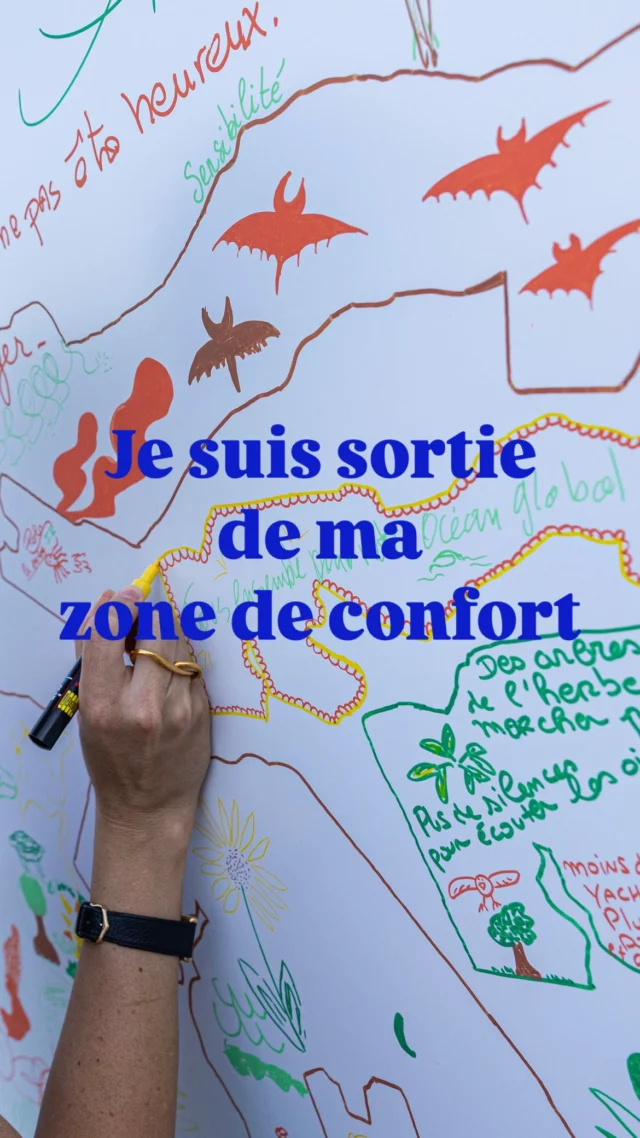 ne pas être heureux.
Sensibilité
Je suis sortie
de ma
zone de confort
océan global
Des arbres
de l'herbe
marcher
Plus de silences
pour écouter les
moins d
YACH
Plu